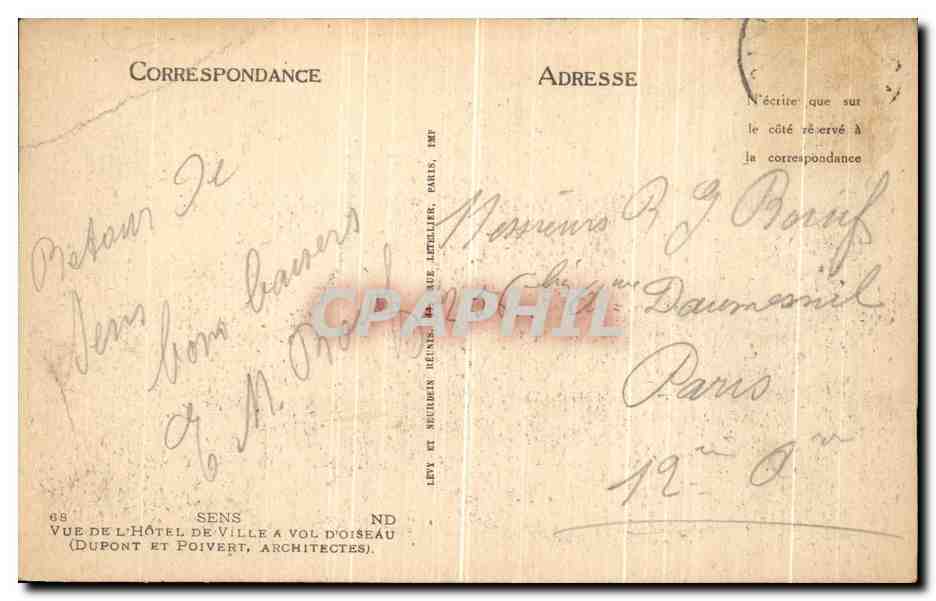 CORRESPONDANCE
ADRESSE
N'écrire que sur
le côté réservé à
la correspondance
Retour de
Sens
bons baisers
E M.
Messieurs R G Boeuf
bis Aue Daumesnil
Paris
12me Ar
LÉVY ET NEURDEIN RÉUNIS, 44, RUE LETELLIER, PARIS, IMP
CPAPHIL
68 SENS ND
VUE DE L'HÔTEL DE VILLE A VOL D'OISEAU
(DUPONT ET POIVERT, ARCHITECTES).